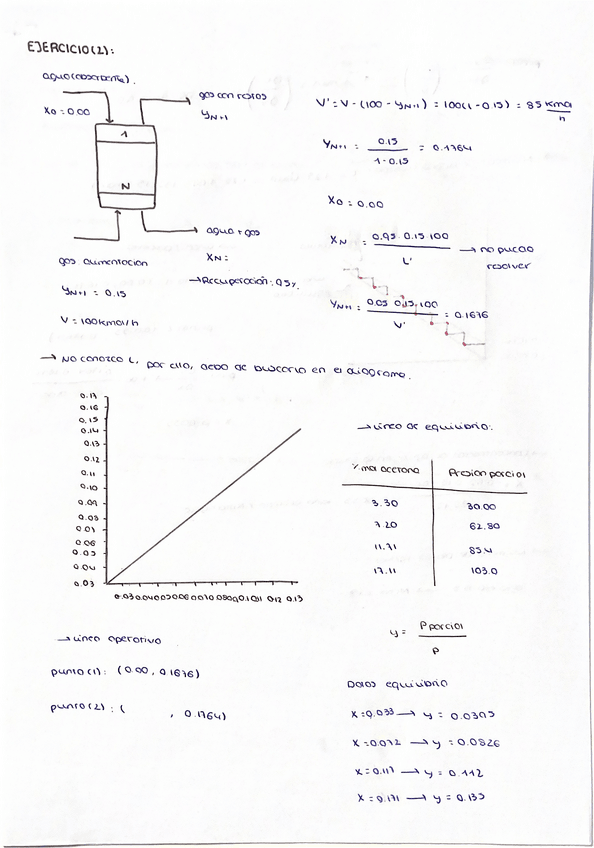 EJERCICIO(2):
agua (absorbente).
X0 = 0.00
gas con restos
YN+1
1
N
agua + gas
XN =
→ Recuperación: 95%
gas alimentacion
YN+1 = 0.15
V = 100 kmol/h
V' = V · (100 - YN+1) = 100(1 - 0.15) = 85 kmol/h
YN+1 = 0.15 / 1 - 0.15 = 0.1764
X0 = 0.00
XN = 0.95 · 0.15 · 100 / L' → no puedo resolver
YN+1 = 0.05 · 0.15 · 100 / V' = 0.1676
→ No conozco L, por ello, debo de buscarlo en el diagrama.
0.17
0.16
0.15
0.14
0.13
0.12
0.11
0.10
0.09
0.08
0.07
0.06
0.05
0.04
0.03
0.03 0.04 0.05 0.06 0.07 0.08 0.09 0.10 0.11 0.12 0.13
→ Linea de equilibrio:
% mol acetona Presion parcial
3.30 30.00
7.20 62.80
11.71 85.4
17.11 103.0
y = P parcial / P
→ Linea operativa
punto (1): (0.00, 0.1676)
punto (2): ( , 0.1764)
Datos equilibrio
X = 0.033 → y = 0.0395
X = 0.072 → y = 0.0826
X = 0.117 → y = 0.112
X = 0.171 → y = 0.135